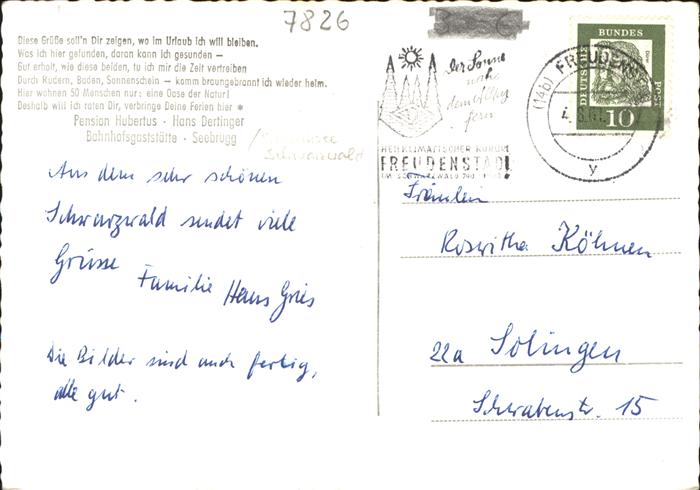 7826
Diese Grüße soll'n Dir zeigen, wo im Urlaub ich will bleiben.
Was ich hier gefunden, daran kann ich gesunden —
Gut erholt, wie diese beiden, tu ich mir die Zeit vertreiben
Durch Rudern, Baden, Sonnenschein — komm braungebrannt ich wieder heim.
Hier wohnen 50 Menschen nur; eine Oase der Natur!
Deshalb will ich raten Dir, verbringe Deine Ferien hier *
Pension Hubertus · Hans Dertinger
Bahnhofsgaststätte · Seebrugg
Schwarzwald
Aus dem sehr schönen
Schwarzwald sendet viele
Grüsse
Familie Hans Gries
Die Bilder sind auch fertig,
alle gut.
Der Sonne
nahe
dem Alltag
fern
HEILKLIMATISCHER KURORT
FREUDENSTADT
IM SCHWARZWALD 740 m
(14b) FREUDENST
y
DEUTSCHE
BUNDES
POST
10
Fräulein
Roswitha Köhnen
22a Solingen
Schwabenstr. 15